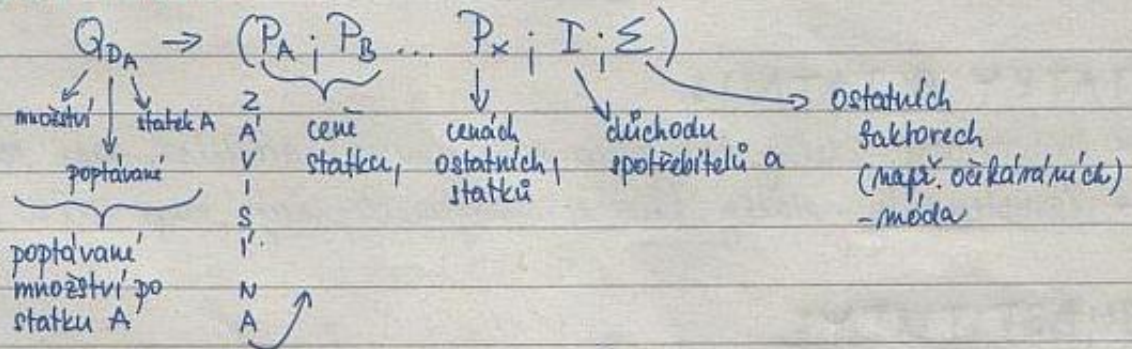 Q_DA → (P_A ; P_B ... P_X ; I ; Σ)
množství
statek A
poptávané
poptávané
množství po
statku A
ZÁVISÍ NA
ceně
statku,
cenách
ostatních,
statků
důchodu
spotřebitelů a
ostatních
faktorech
(např. očekáváních)
- móda